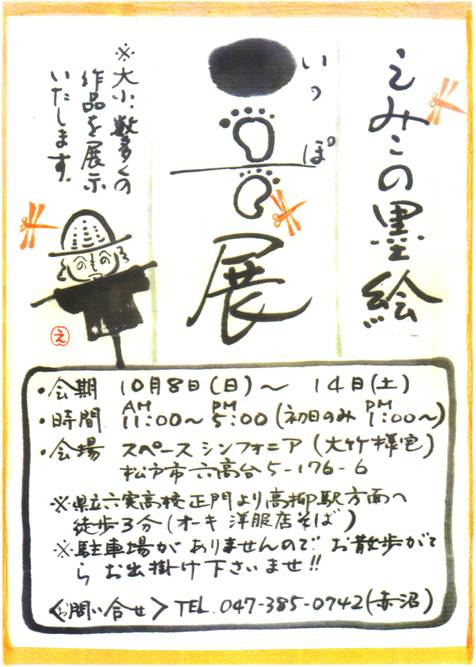 えみこの墨絵
いっぽ
展
※大小、数多くの
作品を展示
いたします。
え
・会期 10月8日(日)〜 14日(土)
・時間 AM 11:00〜 PM 5:00 (初日のみ PM 1:00〜)
・会場 スペース シンフォニア (大竹様宅)
松戸市六高台5-176-6
※県立六実高校正門より高柳駅方面へ
徒歩3分(オーキ 洋服店そば)
※駐車場が ありませんので お散歩がて
ら お出掛け下さいませ!!
<お問い合せ> TEL.047-385-0742(赤沼)